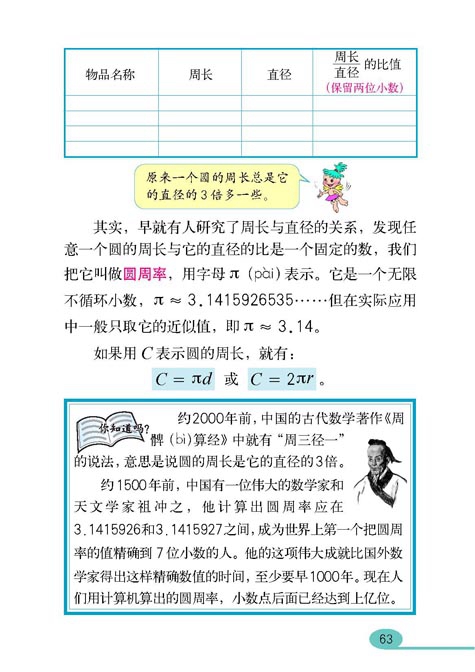 物品名称 周长 直径 周长/直径 的比值
(保留两位小数)
原来一个圆的周长总是它
的直径的3倍多一些。
其实，早就有人研究了周长与直径的关系，发现任
意一个圆的周长与它的直径的比是一个固定的数，我们
把它叫做圆周率，用字母π（pài）表示。它是一个无限
不循环小数，π≈3.1415926535……但在实际应用
中一般只取它的近似值，即π≈3.14。
如果用C表示圆的周长，就有：
C = πd 或 C = 2πr 。
你知道吗?
约2000年前，中国的古代数学著作《周
髀（bì）算经》中就有“周三径一”
的说法，意思是说圆的周长是它的直径的3倍。
约1500年前，中国有一位伟大的数学家和
天文学家祖冲之，他计算出圆周率应在
3.1415926和3.1415927之间，成为世界上第一个把圆周
率的值精确到7位小数的人。他的这项伟大成就比国外数
学家得出这样精确数值的时间，至少要早1000年。现在人
们用计算机算出的圆周率，小数点后面已经达到上亿位。
63